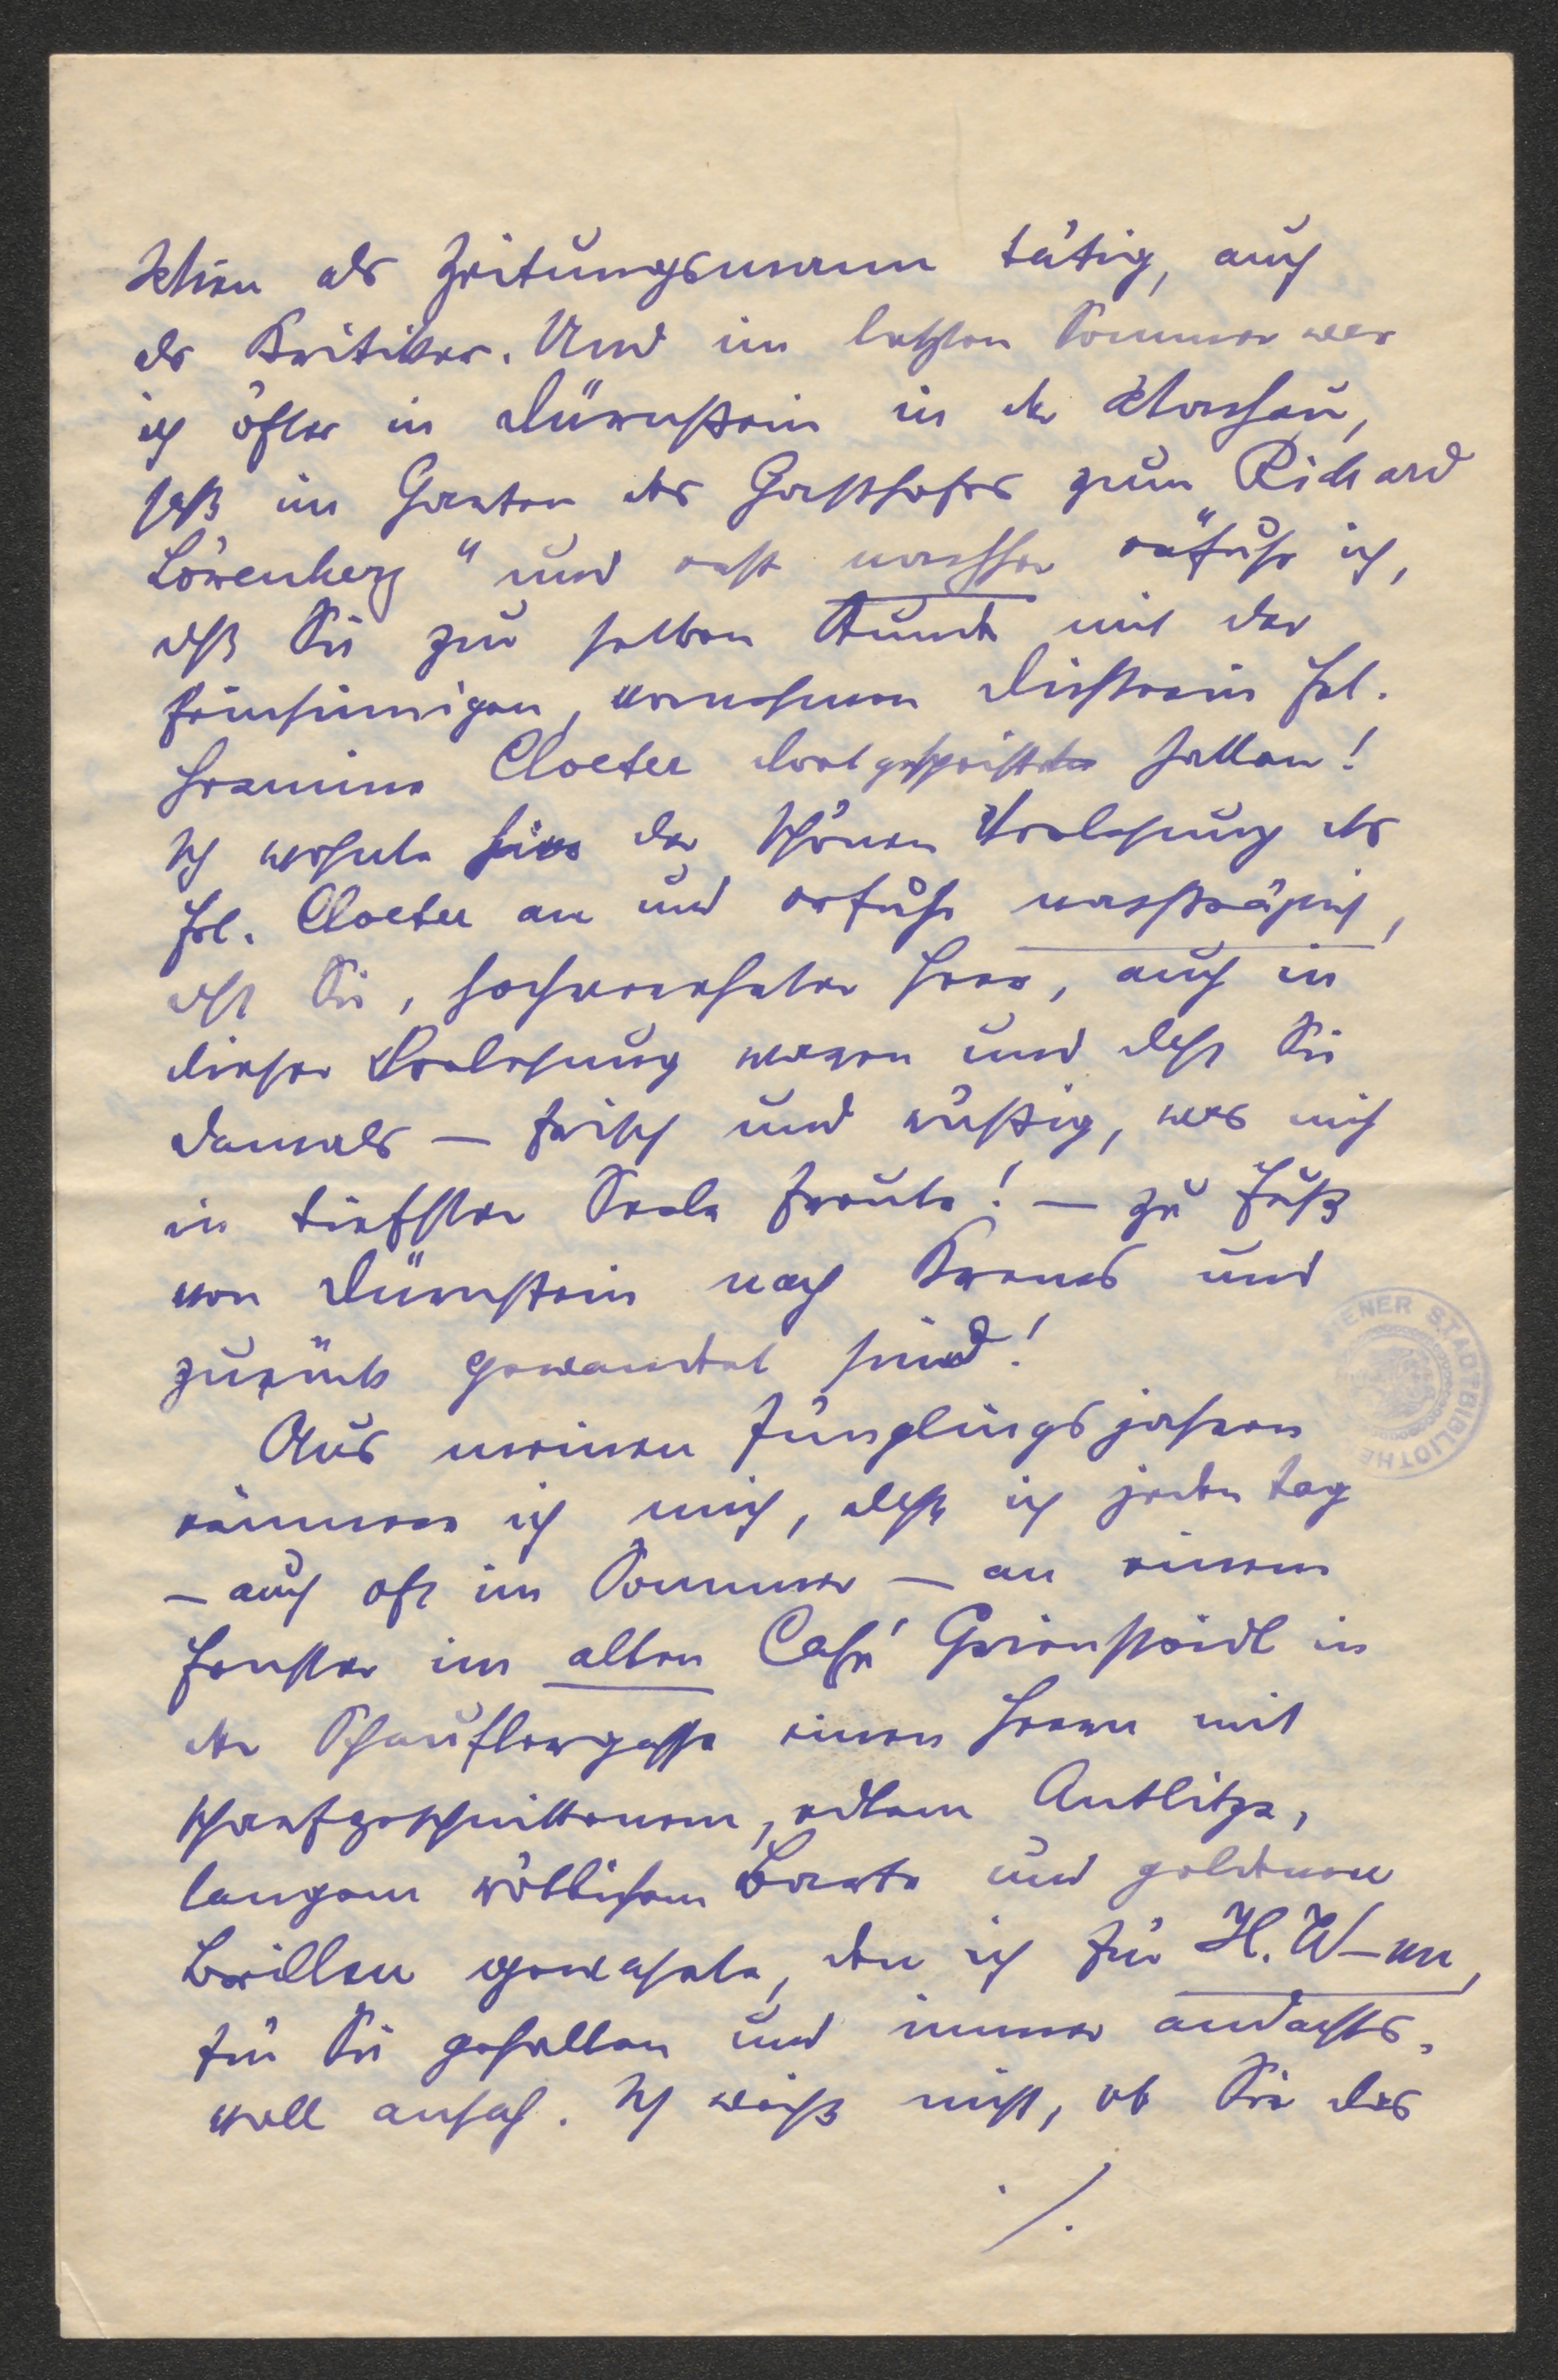 Wien als Zeitungsmann tätig, auch
als Kritiker. Und im letzten Sommer war
ich öfter in Dürnstein in der Wachau,
saß im Garten des Gasthofes zum Richard
Löwenherz" und erst nachher erfuhr ich,
daß Sie zur selben Stunde mit der
feinsinnigen, vornehmen Dichterin Frl.
Hermine Cloeter dort gespeist hatten!
Ich wohnte hier der schönen Vorlesung des
Frl. Cloeter an und erfuhr nachträglich,
daß Sie, hochverehrter Herr, auch in
dieser Vorlesung waren und daß Sie
damals – frisch und rüstig, was mich
in tiefster Seele freute! – zu Fuß
von Dürnstein nach Krems und
zurück gewandert sind!
Aus meinen Jünglingsjahren
erinnere ich mich, daß ich jeden Tag
– auch oft im Sommer – an einem
Fenster im alten Café Griensteidl in
der Schauflergasse einen Herrn mit
scharfgeschnittenem, edlem Antlitze,
langem rötlichem Barte und goldenen
Brillen gewahrte, den ich für H. W–nn,
für Sie gehalten und immer andachts-
voll ansah. Ich weiß nicht, ob Sie das
./.
WIENER STADTBIBLIOTHEK